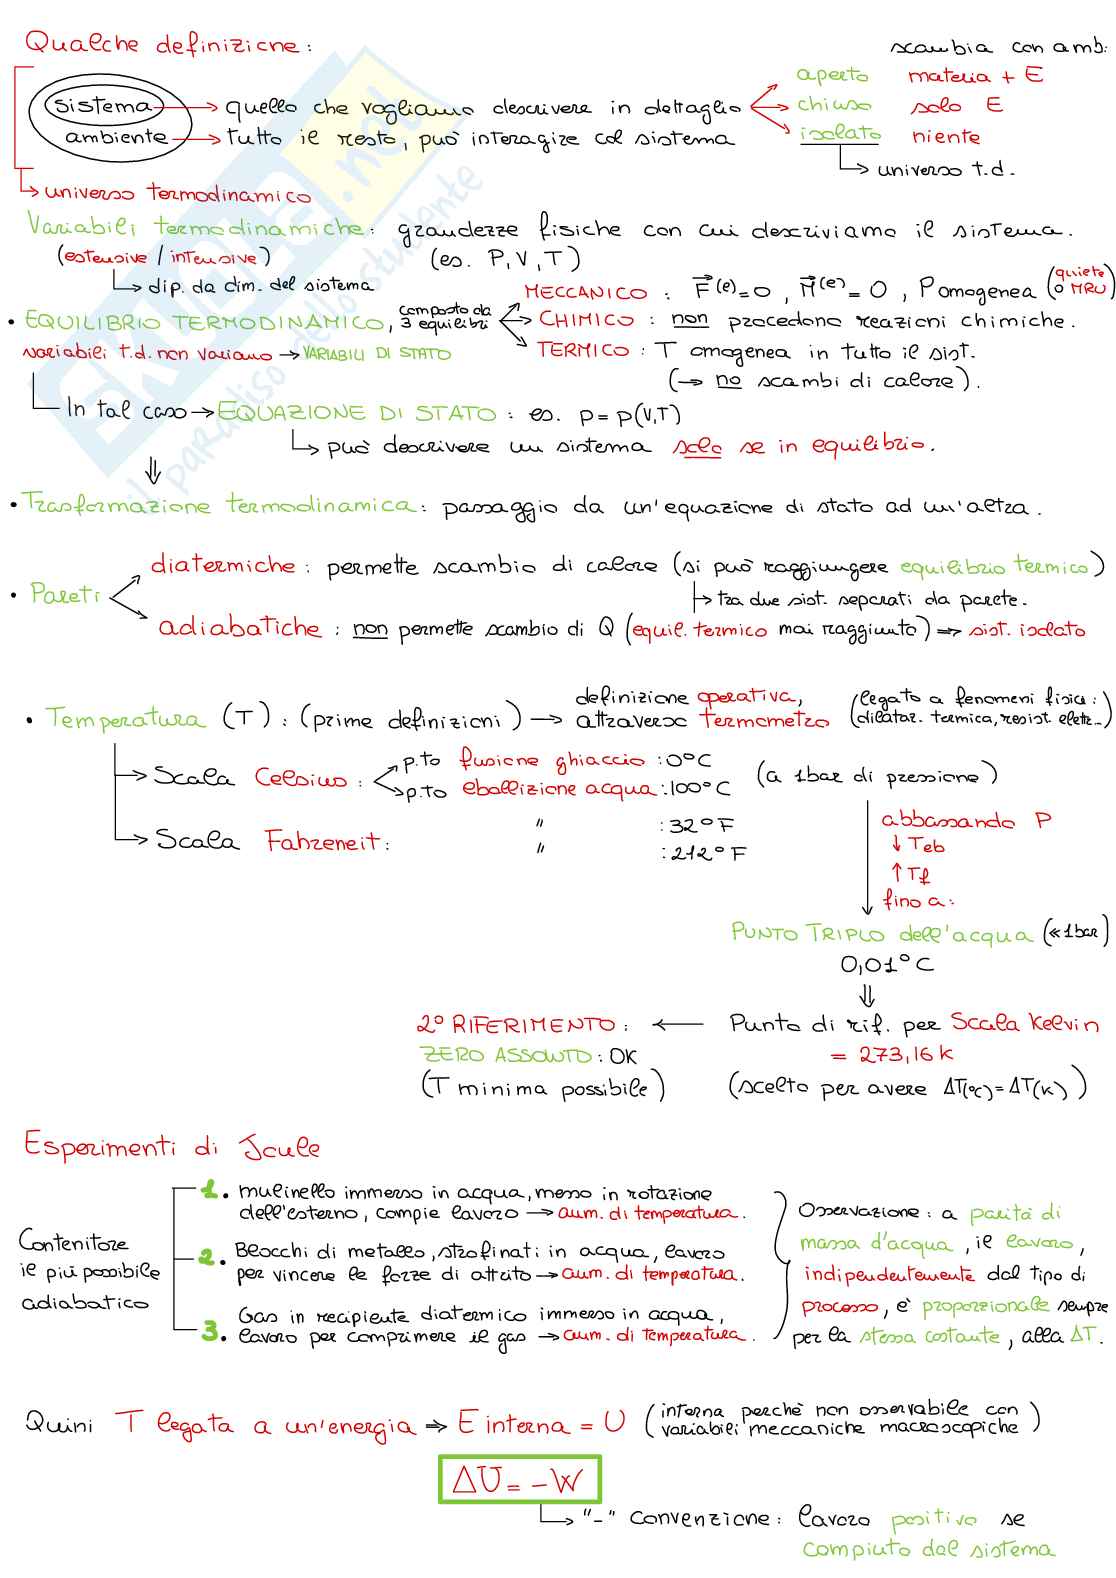 Qualche definizione:
scambia con amb:
aperto materia + E
sistema → quello che vogliamo descrivere in dettaglio chiuso solo E
ambiente → tutto il resto, può interagire col sistema isolato niente
→ universo t.d.
→ universo termodinamico
Variabili termodinamiche: grandezze fisiche con cui descriviamo il sistema.
(estensive / intensive) (es. P, V, T)
→ dip. da dim. del sistema
MECCANICO : F⃗(e)=0 , M⃗(e)=0 , P omogenea (quiete o MRU)
• EQUILIBRIO TERMODINAMICO, composto da 3 equilibri CHIMICO : non procedono reazioni chimiche.
variabili t.d. non variano → VARIABILI DI STATO TERMICO : T omogenea in tutto il sist.
(→ no scambi di calore).
In tal caso → EQUAZIONE DI STATO : es. p = p(V,T)
→ può descrivere un sistema solo se in equilibrio.
⇓
• Trasformazione termodinamica: passaggio da un'equazione di stato ad un'altra.
diatermiche : permette scambio di calore (si può raggiungere equilibrio termico)
• Pareti → tra due sist. separati da parete.
adiabatiche : non permette scambio di Q (equil. termico mai raggiunto) ⇒ sist. isolato
• Temperatura (T) : (prime definizioni) → definizione operativa, attraverso termometro (legato a fenomeni fisici: dilataz. termica, resist. elettr...)
→ Scala Celsius : p.to fusione ghiaccio : 0°C
p.to ebollizione acqua : 100°C (a 1bar di pressione)
→ Scala Fahreneit: " : 32°F
" : 212°F
abbassando P
↓ Teb
↑ Tf
fino a:
PUNTO TRIPLO dell'acqua (≪ 1bar)
0,01°C
⇓
2° RIFERIMENTO : ← Punto di rif. per Scala Kelvin
ZERO ASSOLUTO : 0K = 273,16 k
(T minima possibile) (scelto per avere ΔT(°C) = ΔT(K))
Esperimenti di Joule
Contenitore il più possibile adiabatico
1. mulinello immerso in acqua, messo in rotazione
dell'esterno, compie lavoro → aum. di temperatura.
2. Blocchi di metallo, strofinati in acqua, lavoro
per vincere le forze di attrito → aum. di temperatura.
3. Gas in recipiente diatermico immerso in acqua,
lavoro per comprimere il gas → aum. di temperatura.
Osservazione : a parità di
massa d'acqua, il lavoro,
indipendentemente dal tipo di
processo, è proporzionale sempre
per la stessa costante, alla ΔT.
Quini T legata a un'energia ⇒ E interna = U (interna perchè non osservabile con
variabili meccaniche macroscopiche)
ΔU = −W
→ "−" convenzione: lavoro positivo se
compiuto dal sistema
skuola.net
il paradiso dello studente